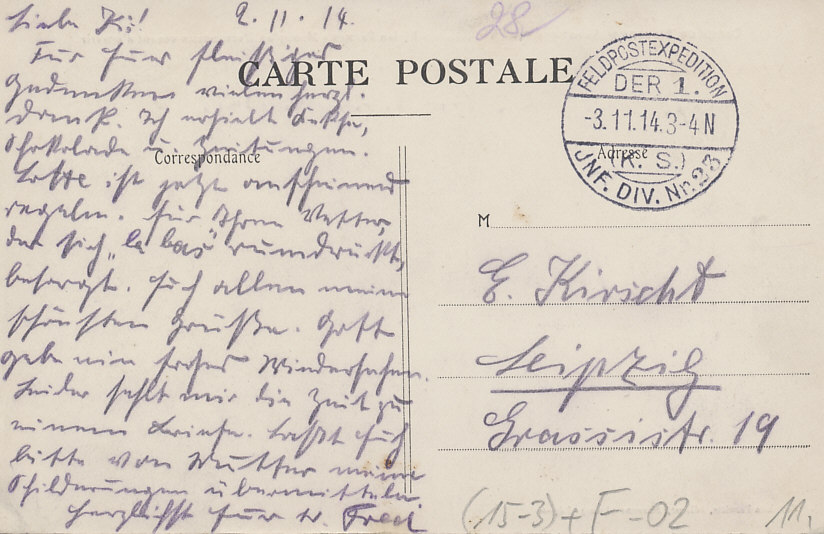 Liebe K.! 2.11.14.
Für Euer fleißiges
Gedenken vielen herzl.
Dank. Ich erhielt Kekse,
Schokolade u. Zeitungen.
ist jetzt anscheinend
regelm. für Ihren Vetter,
der sich „la bas" rumdrückt,
besorgt. Euch allen meine
schönsten Grüße. Gott
gebe ein frohes Wiedersehen.
Leider fehlt mir die Zeit zu
einem Briefe. Laßt Euch
bitte von Mutter meine
Schilderungen übermitteln
Herzlichst Euer tr. Fred
28
CARTE POSTALE
Correspondance
Adresse
FELDPOSTEXPEDITION
DER 1.
-3.11.14.3-4N
(K. S.)
JNF. DIV. Nr. 23
M
E. Kirscht
Leipzig
Grassistr. 19
(15-3)+F-02
11,